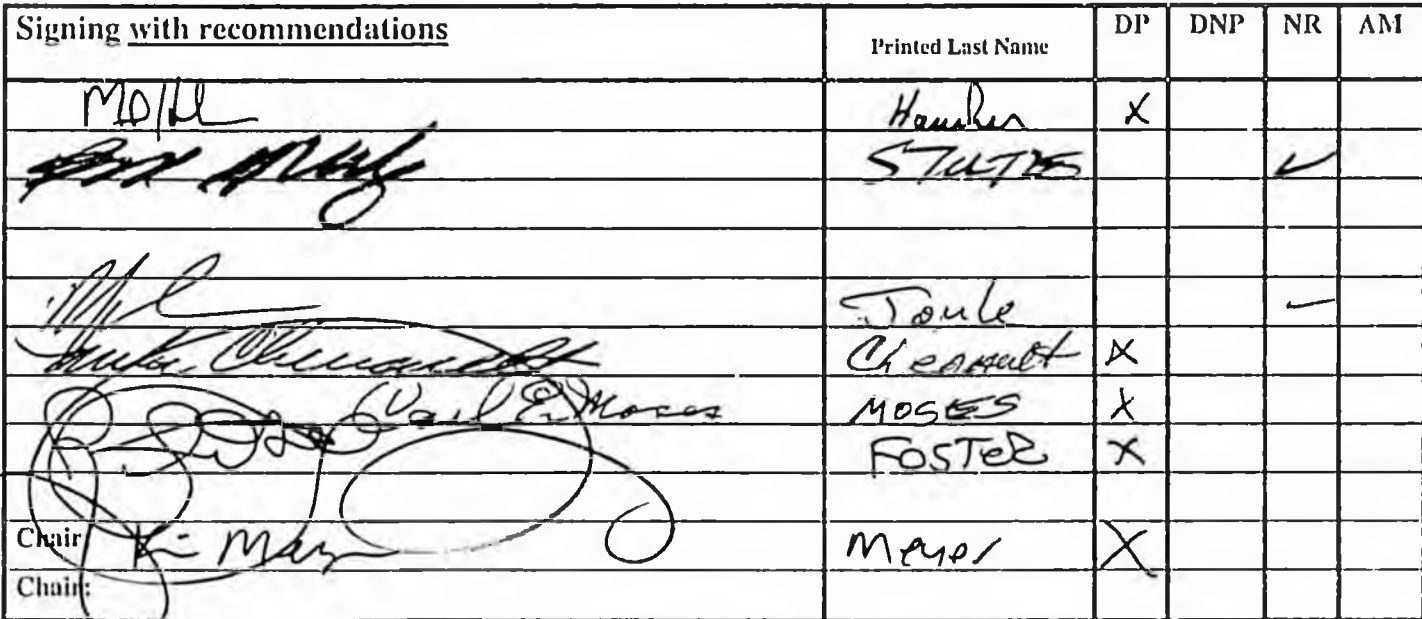 Signing with recommendations Printed Last Name DP DNP NR AM
X
STUTES ✓
Joule
Chenault X
Carl E. Moses MOSES X
FOSTER X
Chair Meyer X
Chair: